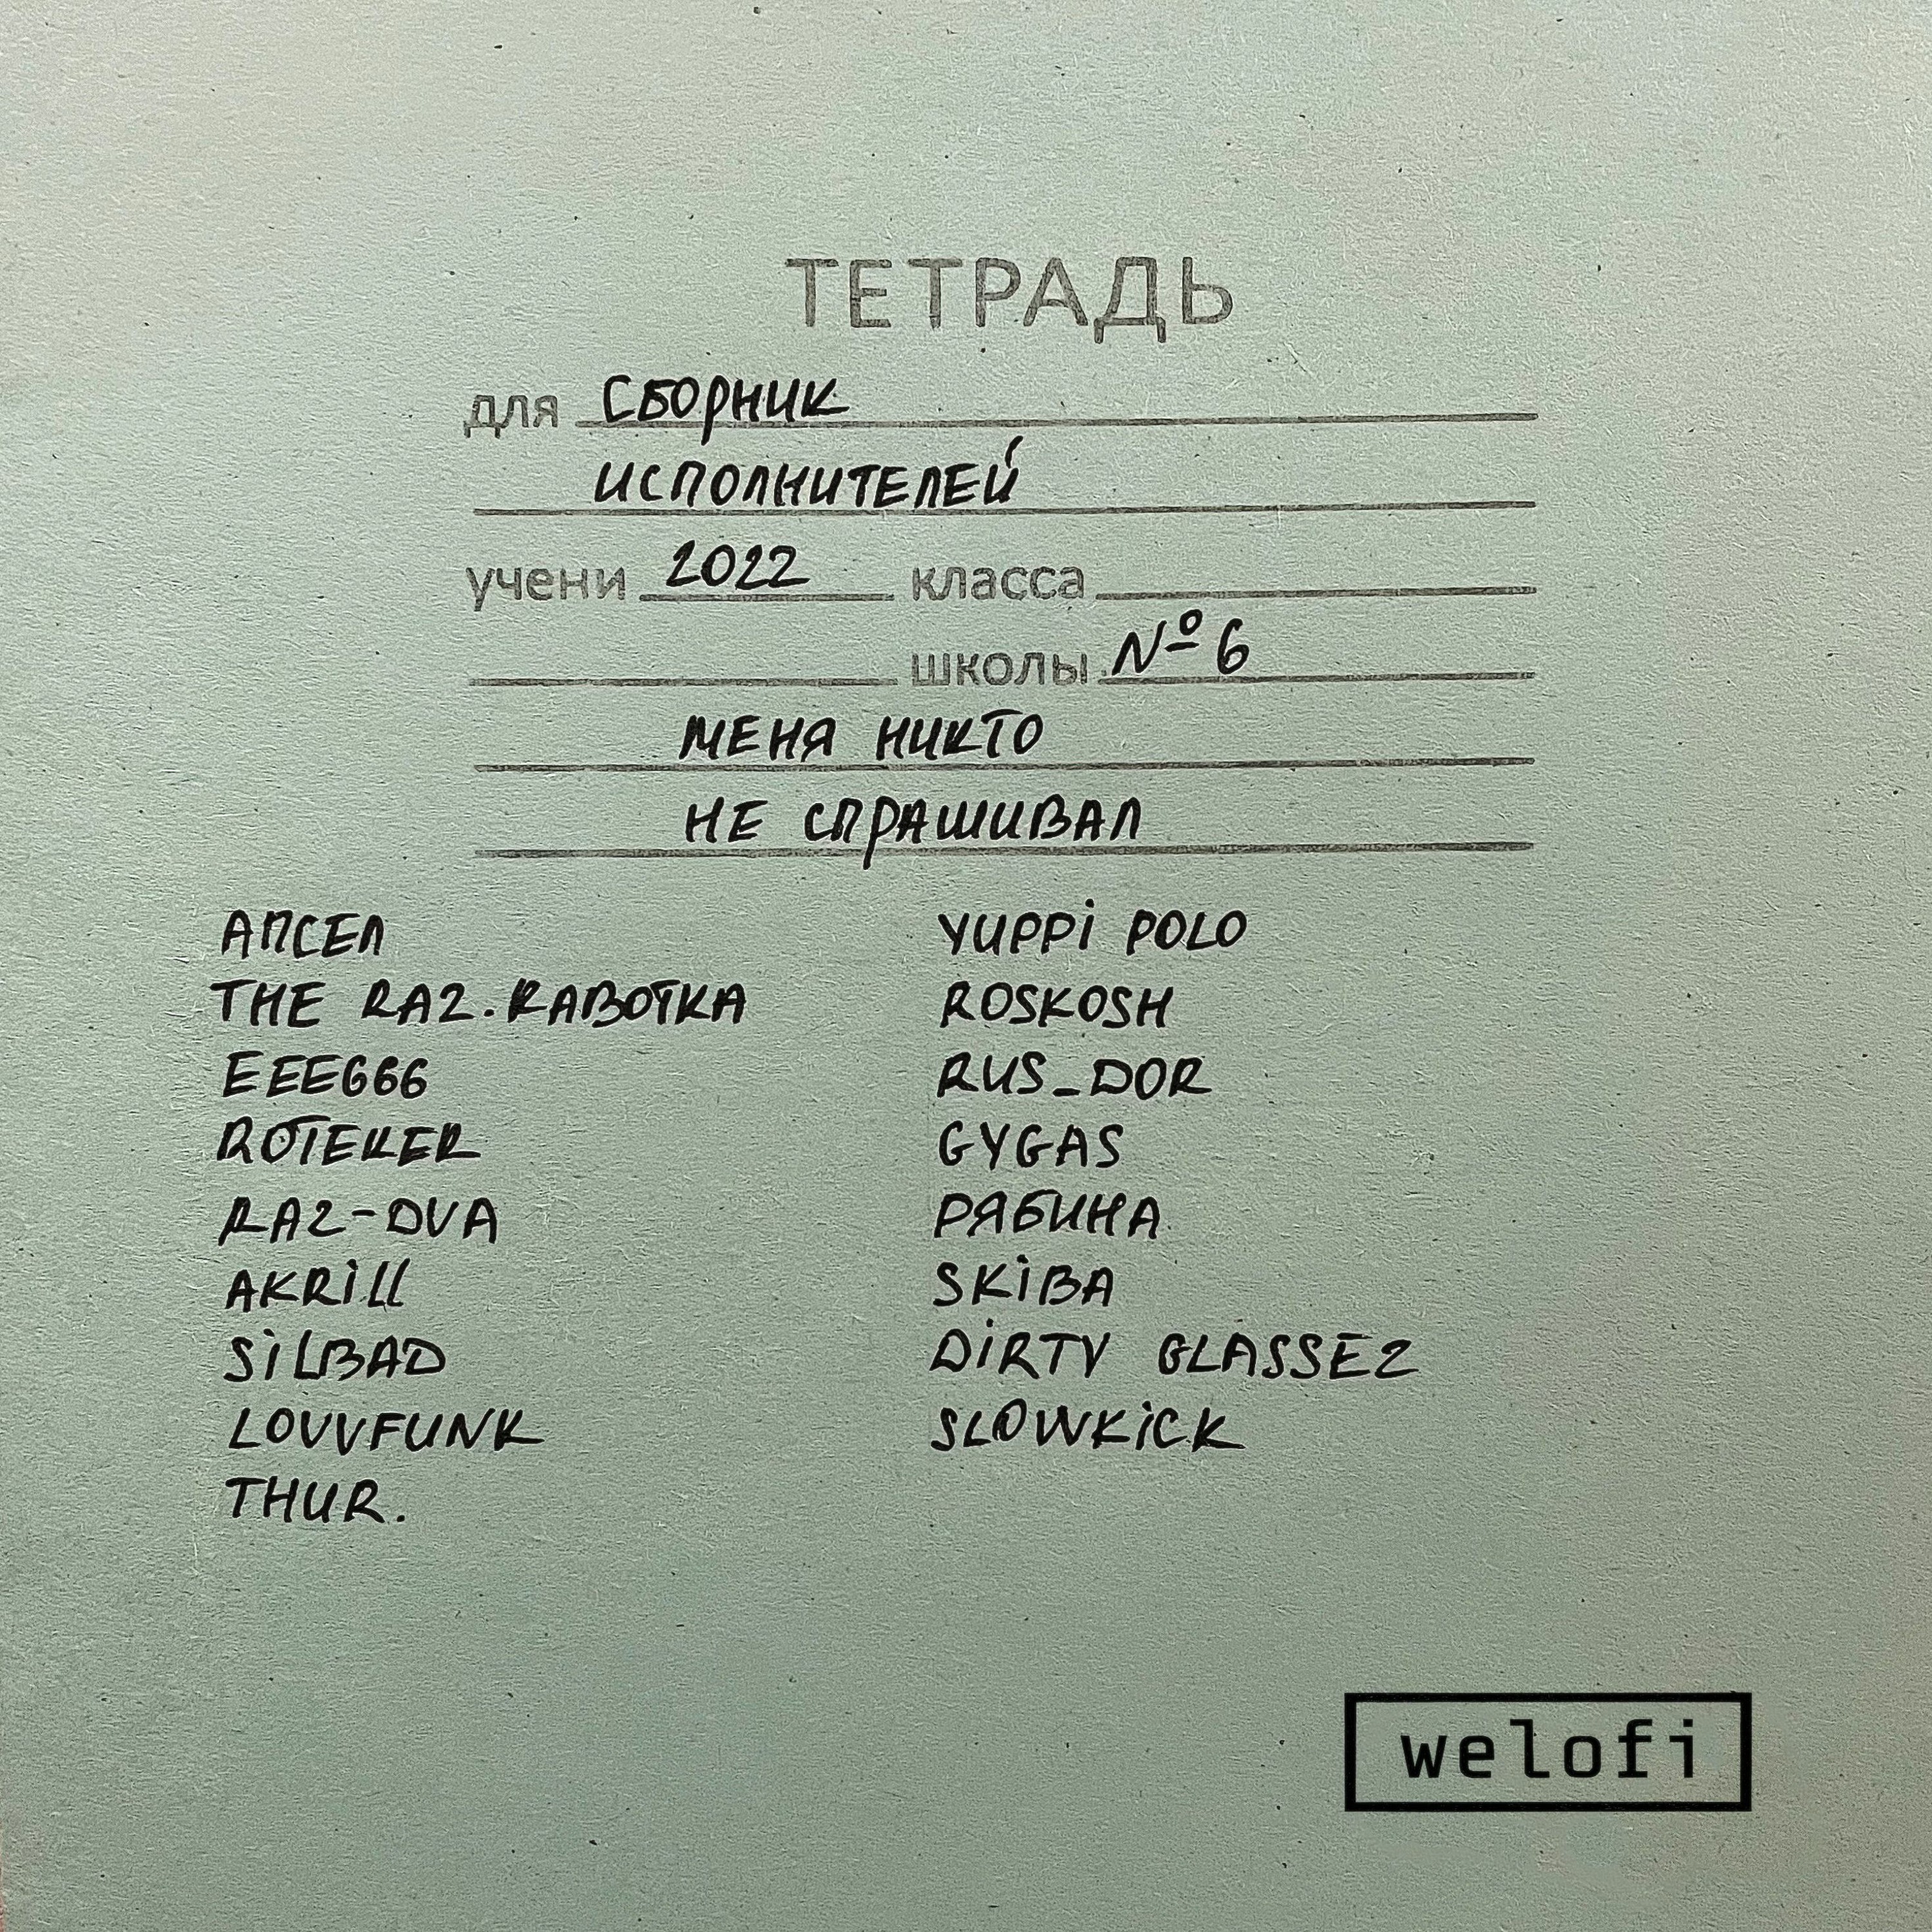 ТЕТРАДЬ
для СБОРНИК
ИСПОЛНИТЕЛЕЙ
учени 2022 класса
школы № 6
МЕНЯ НИКТО
НЕ СПРАШИВАЛ
АПСЕЛ
THE RAZ.RABOTKA
EEE666
ROTEKER
RAZ-DVA
AKRiLL
SiLBAD
LOVVFUNK
THUR.
YUPPi POLO
ROSKOSH
RUS_DOR
GYGAS
РЯБИНА
SKiBA
DiRTY GLASSEZ
SLOWKiCK
welofi